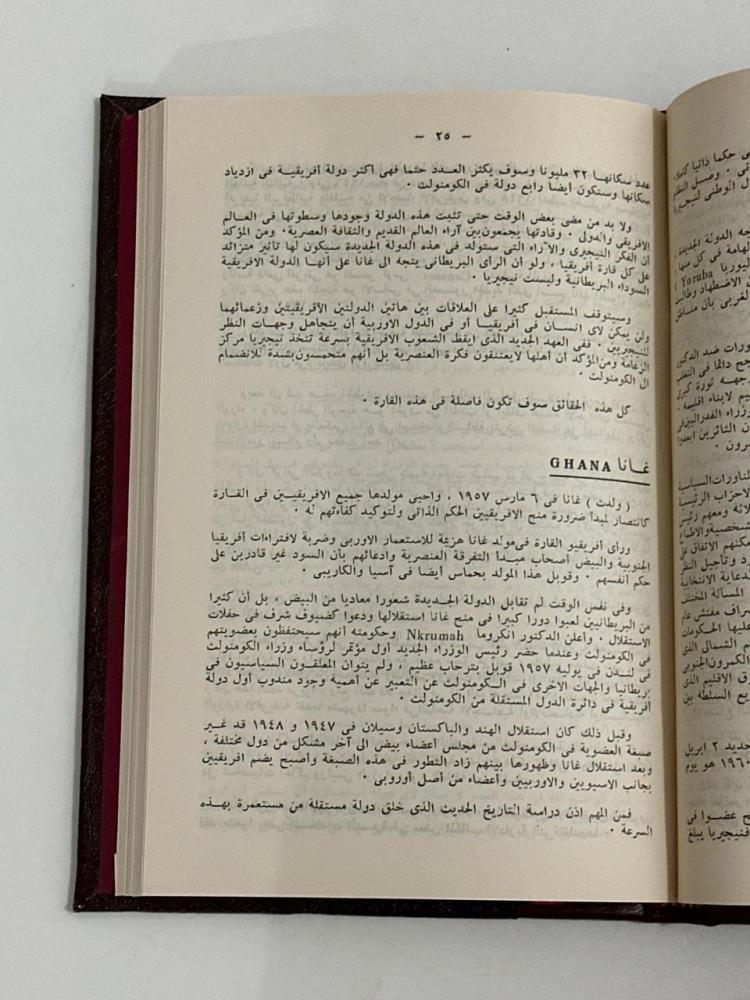 — ٢٥ —
عدد سكانها ٣٢ مليونا وسوف يكثر العدد حتما فهى أكثر دولة أفريقية فى ازدياد
سكانها وستكون أيضا رابع دولة فى الكومنولث ٠
ولا بد من مضى بعض الوقت حتى تثبت هذه الدولة وجودها وسطوتها فى العالم
الافريقى والدولى ٠ وقادتها يجمعون بين آراء العالم القديم والثقافة العصرية ٠ ومن المؤكد
أن الفكر النيجيرى والآراء التى ستولد فى هذه الدولة الجديدة سيكون لها تأثير متزائد
على كل قارة أفريقيا ، ولو أن الرأى البريطانى يتجه الى غانا على أنهـا الدولة الافريقية
السوداء البريطانية وليست نيجيريا ٠
وسيتوقف المستقبل كثيرا على العلاقات بين هاتين الدولتين الآفريقيتين وزعمائهما
ولن يمكن لاى انسـان فى أفريقيـا أو فى الدول الاوربية أن يتجاهل وجهـات النظر
للنيجيريين ٠ ففى العهد الجديد الذى أيقظ الشعوب الافريقية بسرعة تتخذ نيجيريا مركز
الزعامة ومن المؤكد أن أهلها لايعتنقون فكرة العنصرية بل أنهم متحمسون بشدة للانضمام
الى الكومنولث ٠
كل هذه الحقائق سوف تكون فاصلة فى هذه القارة ٠
غـانا GHANA
( ولدت ) غانا فى ٦ مارس ١٩٥٧ ، واحيى مولدها جميع الافريقيـين فى القـارة
كانتصار لمبدأ ضرورة منح الافريقيين الحكم الذاتى ولتوكيد كفاءتهم له ٠
ورأى أفريقيو القارة فى مولد غانا هزيمة للاستعمار الاوربى وضربة لافتراءات أفريقيا
الجنوبية والبيض أصحاب مبـدأ التفرقة العنصرية وادعائهم بأن السود غير قادرين على
حكم أنفسهم ٠ وقوبل هذا المولد بحماس أيضا فى آسيا والكاريبى ٠
وفى نفس الوقت لم تقابل الدولة الجـديدة شعورا معاديا من البيض ، بل أن كثيرا
من البريطانيين لعبوا دورا كبيرا فى منح غانا استقلالها ودعوا كضيوف شرف فى حفلات
الاستقلال ٠ وأعلن الدكتور انكروما Nkrumah وحكومته أنهم سيحتفظون بعضويتهم
فى الكومنولث وعندما حضر رئيس الوزراء الجديد أول مؤتمر لرؤساء وزراء الكومنولث
فى لنـدن فى يوليه ١٩٥٧ قوبل بترحاب عظيم ، ولم يتوان المعلقـون السياسيون فى
بريطانيا والجهات الاخرى فى الـكومنولث عن التعبير عن أهمية وجود مندوب أول دولة
أفريقية فى دائرة الدول المستقلة من الكومنولث ٠
وقبل ذلك كان استقلال الهند والباكستان وسيلان فى ١٩٤٧ و ١٩٤٨ قد غـير
صبغة العضوية فى الكومنولث من مجلس أعضاء بيض الى آخر مشكل من دول مختلفة ،
وبعد استقلال غانا وظهورها بينهم زاد التطور فى هذه الصبغة وأصبح يضم افريقيين
بجانب الاسيويين والاوربيين وأعضاء من أصل أوروبى ٠
فمن المهم اذن دراسة التاريخ الحديث الذى خلق دولة مستقلة من مستعمرة بهـذه
السرعة ٠